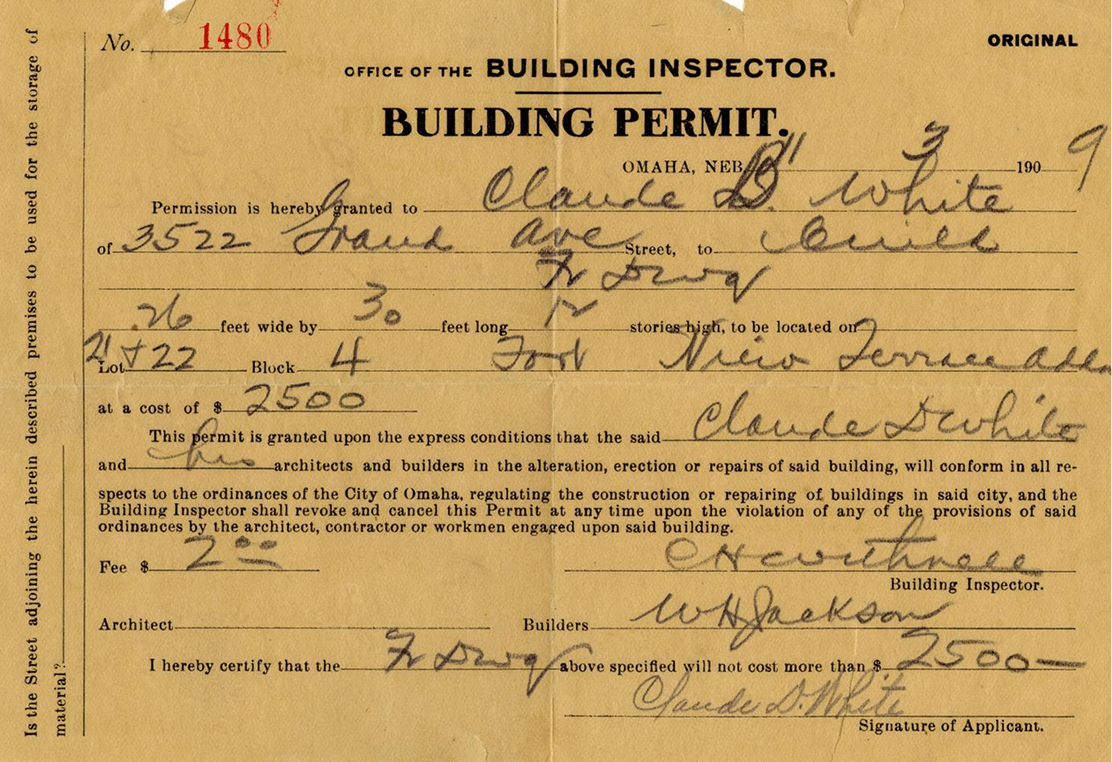 No. 1480
ORIGINAL
OFFICE OF THE BUILDING INSPECTOR.
BUILDING PERMIT.
OMAHA, NEB. 3 1909
Permission is hereby granted to Claude D. White
of 3522 Grand Ave Street, to Build
Fr Dwg
26 feet wide by 30 feet long stories high, to be located on
Lot 21 + 22 Block 4 Fort View Terrace Add
at a cost of $ 2500
This permit is granted upon the express conditions that the said Claude D White
and his architects and builders in the alteration, erection or repairs of said building, will conform in all re-
spects to the ordinances of the City of Omaha, regulating the construction or repairing of buildings in said city, and the
Building Inspector shall revoke and cancel this Permit at any time upon the violation of any of the provisions of said
ordinances by the architect, contractor or workmen engaged upon said building.
Fee $ 2 00 C H Withnell
Building Inspector.
Architect Builders W H Jackson
I hereby certify that the Fr Dwg above specified will not cost more than $ 2500—
Claude D. White
Signature of Applicant.
Is the Street adjoining the herein described premises to be used for the storage of
material?